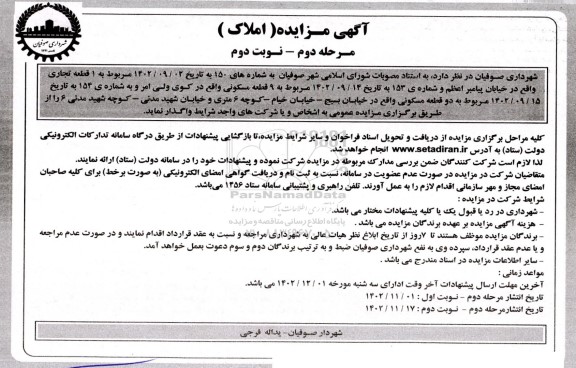 آگهی مزایده( املاک )
مرحله دوم – نوبت دوم
شهرداری صوفیان
شهرداری صوفیان در نظر دارد، به استناد مصوبات شورای اسلامی شهر صوفیان به شماره های ۱۵۰ به تاریخ ۱۴۰۲/۰۹/۰۲ مربوط به ۱ قطعه تجاری
واقع در خیابان پیامبر اعظم و شماره ی ۱۵۳ به تاریخ ۱۴۰۲/۰۹/۱۴ مربوط به ۹ قطعه مسکونی واقع در کوی ولی امر و به شماره ی ۱۵۳ به تاریخ
۱۴۰۲/۰۹/۱۵ مربوط به دو قطعه مسکونی واقع در خیابان بسیج – خیابان خیام – کوچه ۶ متری و خیابان شهید مدنی – کوچه شهید مدنی ۶ را از
طریق برگزاری مزایده عمومی به اشخاص و یا شرکت های واجد شرایط واگذار نماید.
کلیه مراحل برگزاری مزایده از دریافت و تحویل اسناد فراخوان و سایر شرایط مزایده،تا بازگشایی پیشنهادات از طریق درگاه سامانه تدارکات الکترونیکی
دولت (ستاد) به آدرس www.setadiran.ir انجام خواهد شد.
لذا لازم است شرکت کنندگان ضمن بررسی مدارک مربوطه در مزایده شرکت نموده و پیشنهادات خود را در سامانه دولت (ستاد) ارائه نمایند.
متقاضیان شرکت در مزایده در صورت عدم عضویت در سامانه، نسبت به ثبت نام و دریافت گواهی امضای الکترونیکی (به صورت برخط) برای کلیه صاحبان
امضای مجاز و مهر سازمانی اقدام لازم را به عمل آورند. تلفن راهبری و پشتیبانی سامانه ستاد ۱۴۵۶ می‌باشد.
شرایط شرکت در مزایده :
- شهرداری در رد یا قبول یک یا کلیه پیشنهادات مختار می باشد.
- هزینه آگهی مزایده بر عهده برندگان مزایده می باشد .
- برندگان مزایده موظف هستند تا ۷روز از تاریخ ابلاغ نظر هیات عالی به شهرداری مراجعه و نسبت به عقد قرارداد اقدام نمایند و در صورت عدم مراجعه
و یا عدم عقد قرارداد، سپرده وی به نفع شهرداری صوفیان ضبط و به ترتیب برندگان دوم و سوم دعوت بعمل خواهد آمد.
- سایر اطلاعات مزایده در اسناد مندرج می باشد .
مواعد زمانی :
آخرین مهلت ارسال پیشنهادات آخر وقت اداری سه شنبه مورخه ۱۴۰۲/۱۲/۰۱ می باشد.
تاریخ انتشار مرحله دوم – نوبت اول : ۱۴۰۲/۱۱/۰۱
تاریخ انتشار مرحله دوم – نوبت دوم : ۱۴۰۲/۱۱/۱۷
شهردار صوفیان – یداله فرجی
ParsNamadData
پایگاه اطلاع رسانی مناقصه و مزایده